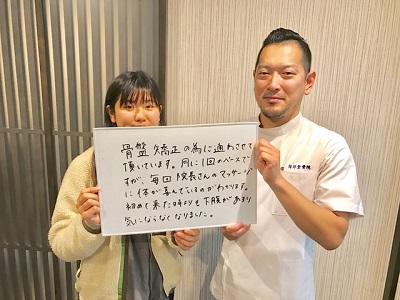 骨盤矯正の為に通わさせて
頂いています。月に1回のペースで
すが、毎回院長さんのマッサージ
に体が喜んでいるのがわかります。
初めて来た時よりも下腹があまり
気にならなくなりました。